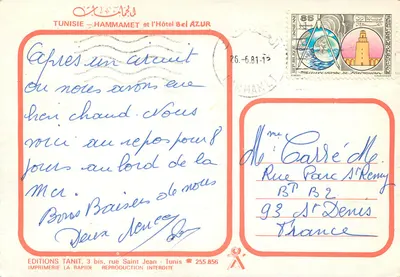 TUNISIE - HAMMAMET et l'Hôtel Bel AZUR
26.-6.81-12
après un circuit
ou nous avons eu
bien chaud. Nous
voici au repos pour 8
jours au bord de la
Mer.
Bons Baisers de nous
Deux
Mme Carré M.
Rue Parc St Remy
BT B2
93 St Denis
France
EDITIONS TANIT, 3 bis, rue Saint Jean - Tunis ☎ 255.856
IMPRIMERIE LA RAPIDE REPRODUCTION INTERDITE